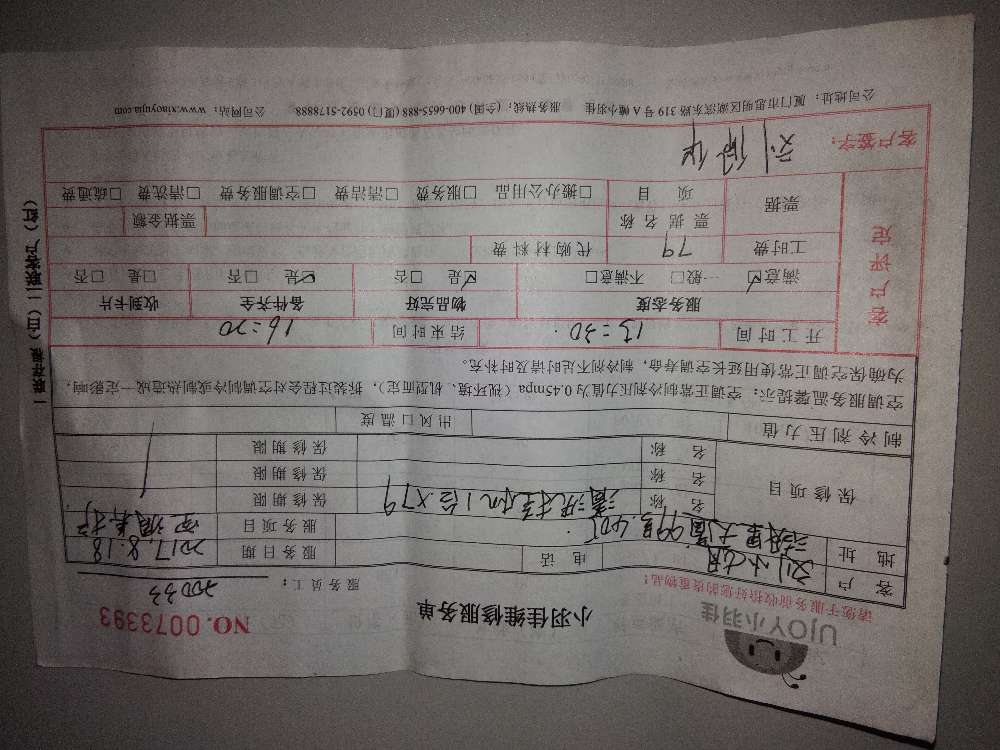 UJOY小羽佳
请您于服务前收拾好您的贵重物品！
小羽佳维修服务单
NO. 0073393
服务员工：20033
客户 刘小姐 电话 服务日期 2017.8.18
地址 湖里大道99号.405 服务项目 空调养护
保修项目
名称 清洗挂机1台×79 保修期限
名称 保修期限
名称 保修期限
制冷剂压力值 出风口温度
空调服务温馨提示：空调正常制冷剂压力值为0.45mpa（视环境、机型而定），拆装过程会对空调制冷或制热造成一定影响，
为确保空调正常使用延长空调寿命，制冷剂不足时请及时补充。
客户评定
开工时间 13:30 结束时间 16:20
服务态度 物品完好 备件齐全 收到卡片
满意☑ 一般□ 不满意□ ☑是 □否 ☑是 □否 □是 □否
工时费 79 代购材料费
票据 票据名称 票据金额
项目 □搬办公用品 □服务费 □清洁费 □空调服务费 □清洗费 □疏通费
客户签字：
公司地址：厦门市思明区湖滨东路319号A幢小羽佳 服务热线：(全国)400-6655-888 (厦门)0592-5178888 公司网站：www.xiaoyujia.com
一联存根（白）二联客户（红）